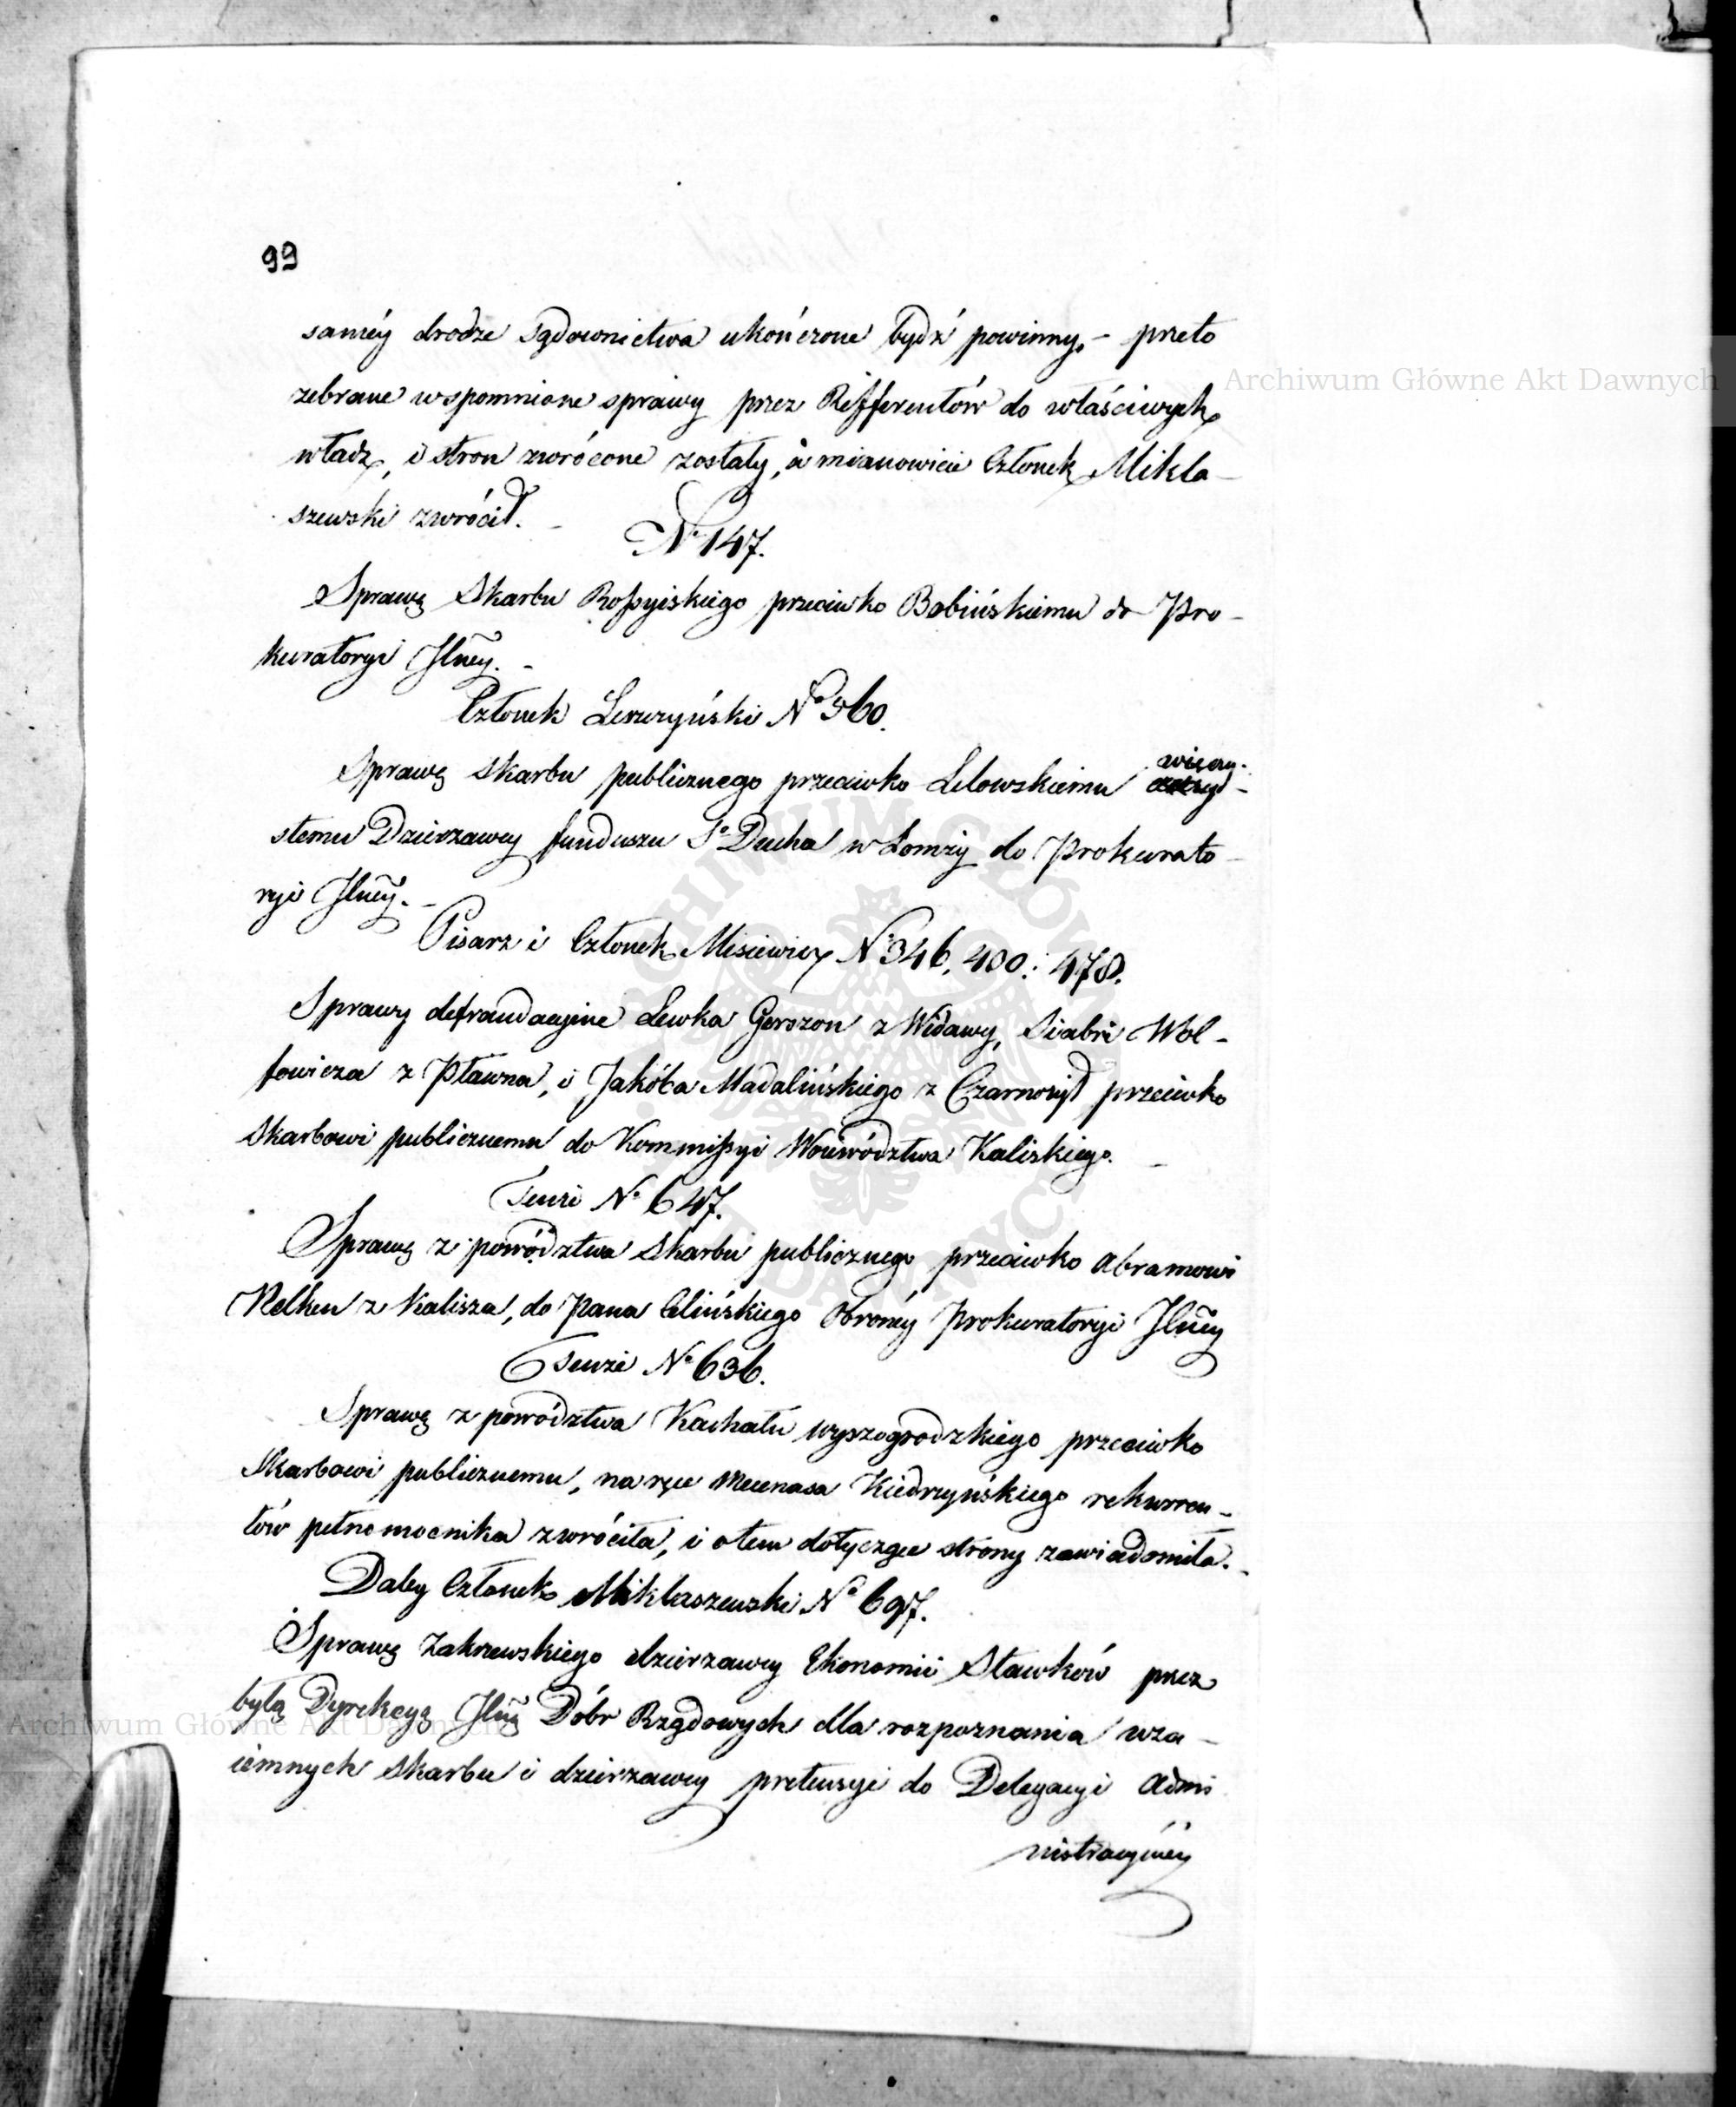 99
saméy drodze sądownictwa ukończone bydź powinny, – przeto
zebrane wspomnione sprawy przez Refferentów do właściwych
władz, i stron zwrócone zostały, a mianowicie Członek Mikla-
szewski zwrócił. –
No 147.
Sprawę Skarbu Rossyiskiego przeciwko Babińskiemu do Pro-
kuratoryi Jlney. –
Członek Leszczyński No 360.
Sprawę skarbu publicznego przeciwko Lelowskiemu wieczy-
stemu Dzierzawcy funduszu So Ducha w Łomży do Prokurato-
ryi Jlnéy. –
Pisarz i Członek Misiewicz No 346, 400. i 478.
Sprawy defraudacyine Lewka Gerszon z Widawy, Siabri Wol-
fowicza z Pławna, i Jakóba Madalińskiego z Czarnożył przeciwko
Skarbowi publicznemu do Kommissyi Woiewództwa Kaliskiego. –
Tenże No 647.
Sprawę z powództwa Skarbu publicznego przeciwko Abramowi
Nelken z Kalisza, do Pana Celińskiego Obrońcy Prokuratoryi Jlney
Tenże No 636.
Sprawę z powództwa Kachału wyszogrodzkiego przeciwko
Skarbowi publicznemu, na ręce Mecenasa Kiedrzyńskiego rekurren-
tów pełnomocnika zwróciła, i o tem dotyczące strony zawiadomiła. –
Daley Członek Miklaszewski No 697.
Sprawę Zakrzewskiego dzierzawcy Ekonomii Sławków przez
byłą Dyrekcyą Jlną Dóbr Rządowych dla rozpoznania wza-
iemnych skarbu i dzierzawcy pretensyi do Delegacyi Admi
nistracyiney
Archiwum Główne Akt Dawnych
Archiwum Główne Akt Dawnych
ARCHIWUM GŁÓWNE AKT DAWNYCH